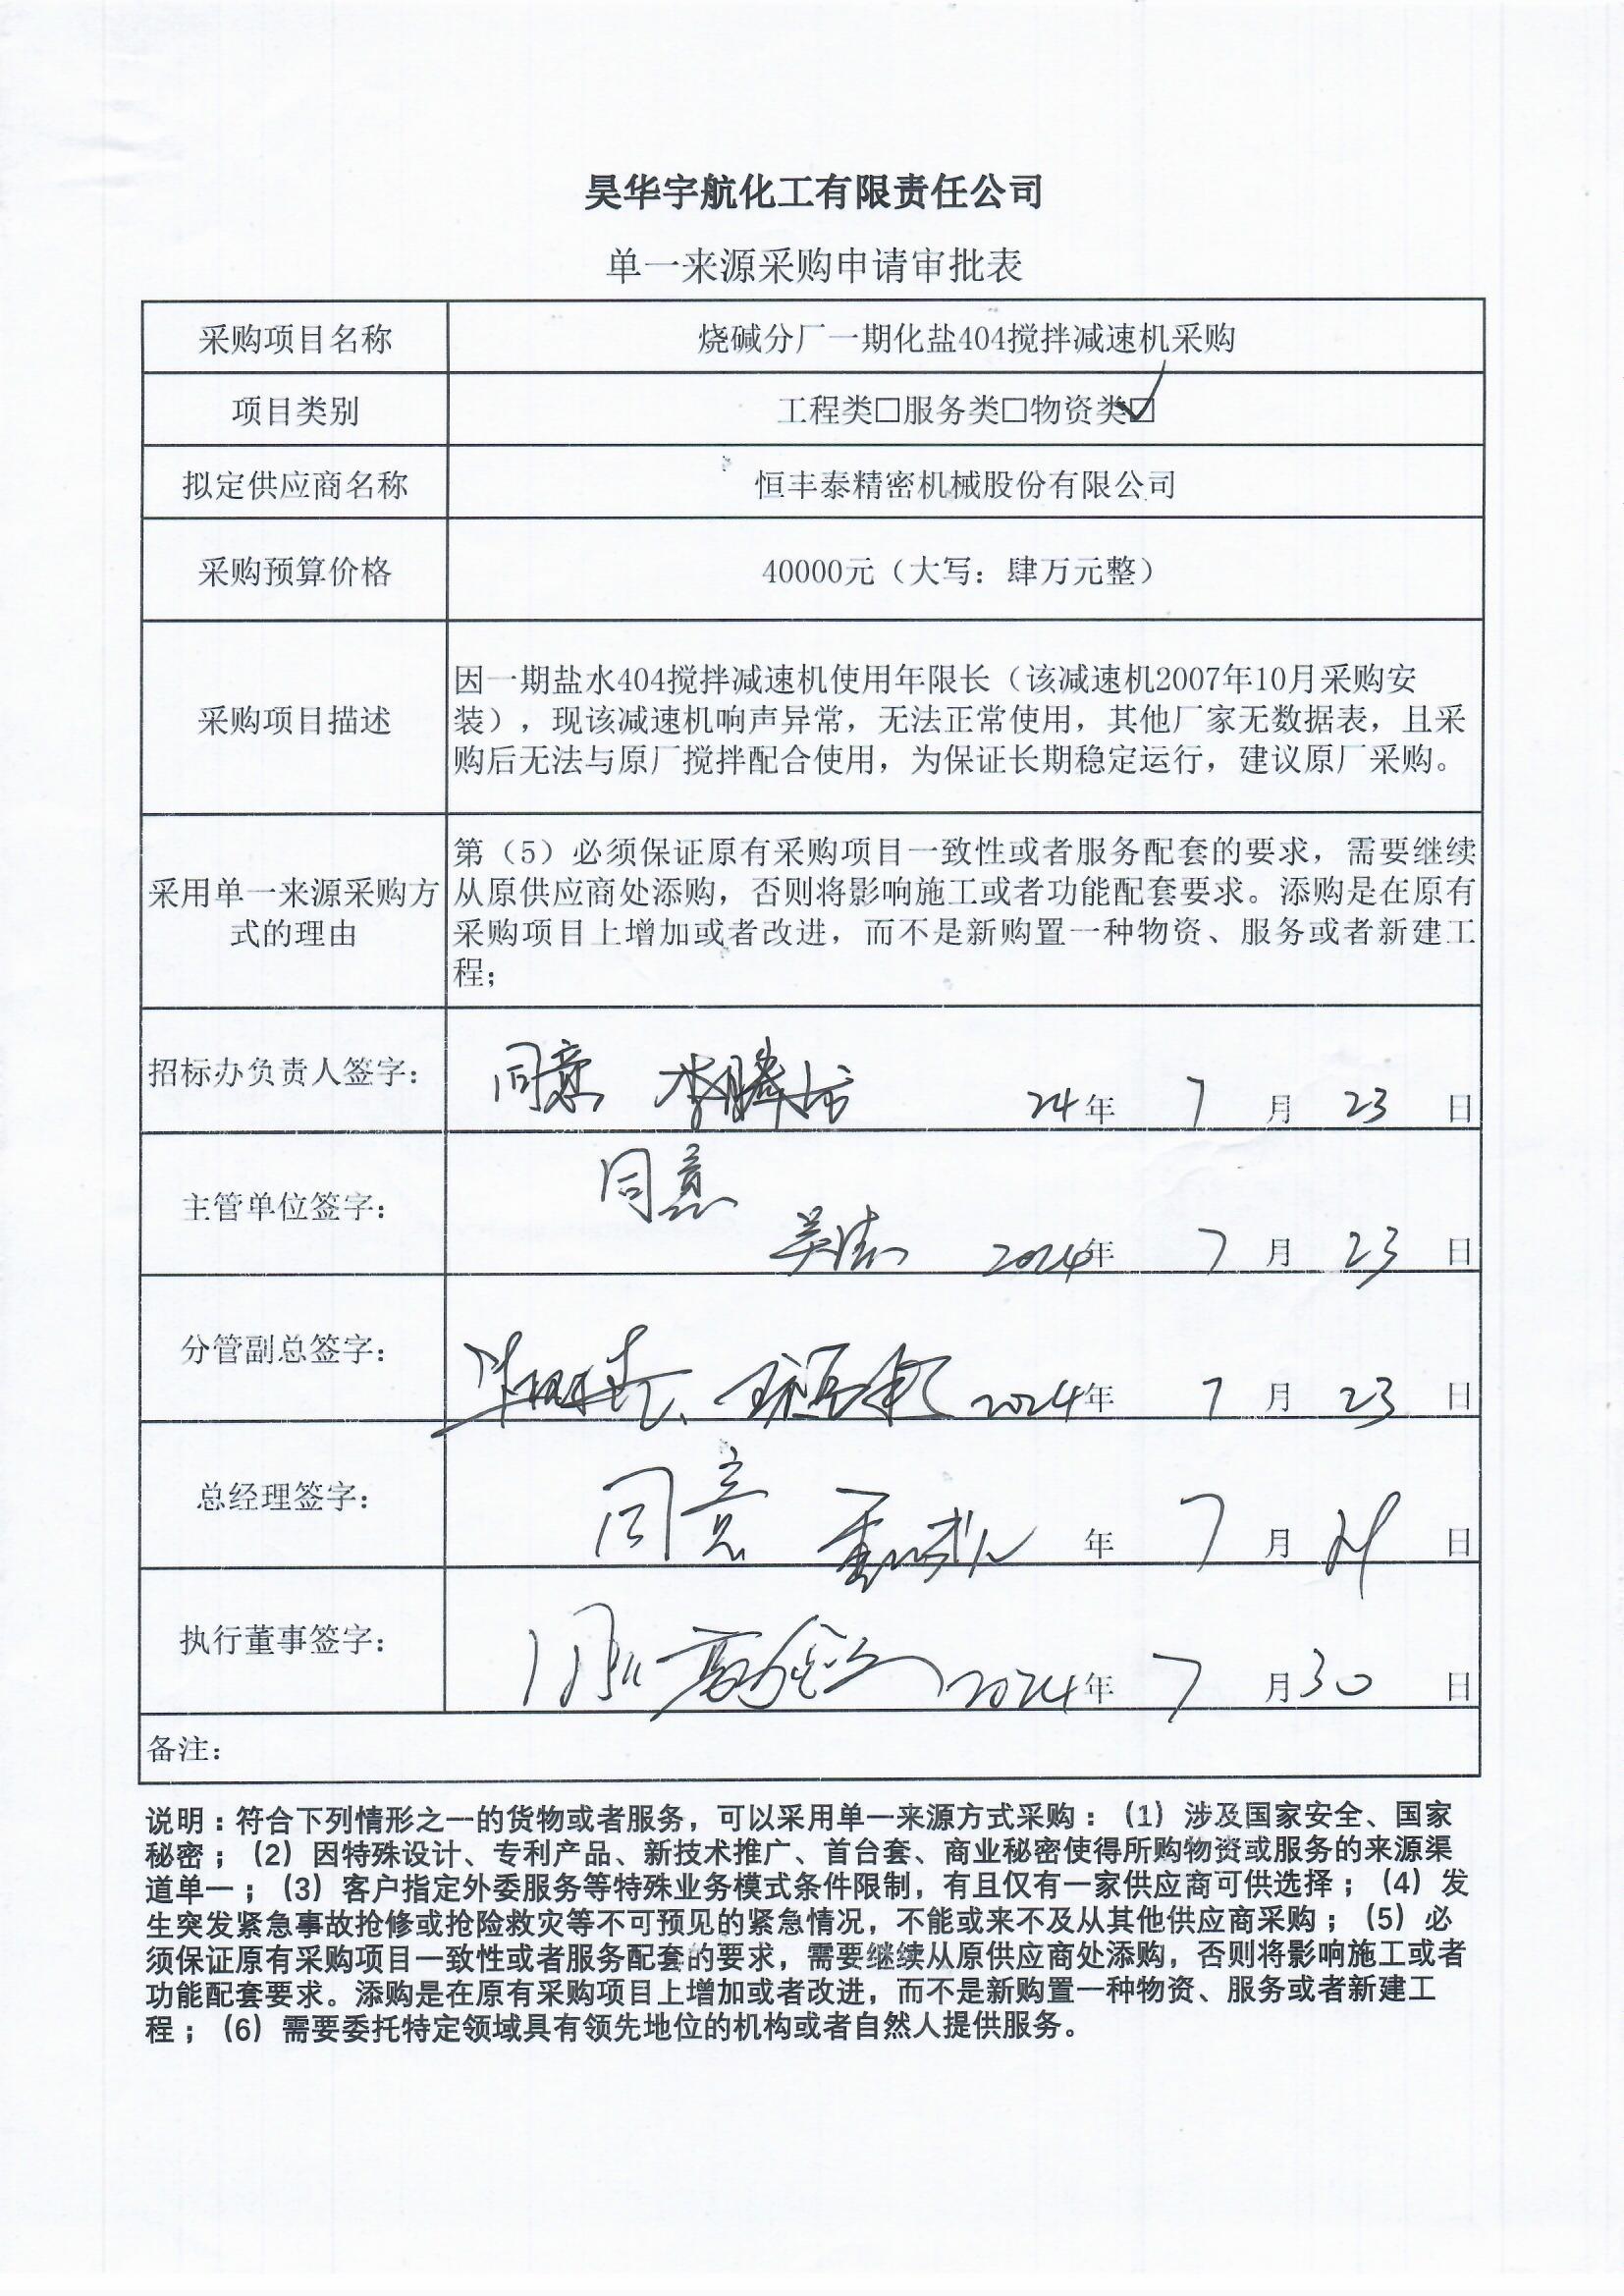 昊华宇航化工有限责任公司
单一来源采购申请审批表
采购项目名称
烧碱分厂一期化盐404搅拌减速机采购
项目类别
工程类□服务类□物资类☑
拟定供应商名称
恒丰泰精密机械股份有限公司
采购预算价格
40000元（大写：肆万元整）
采购项目描述
因一期盐水404搅拌减速机使用年限长（该减速机2007年10月采购安
装），现该减速机响声异常，无法正常使用，其他厂家无数据表，且采
购后无法与原厂搅拌配合使用，为保证长期稳定运行，建议原厂采购。
采用单一来源采购方
式的理由
第（5）必须保证原有采购项目一致性或者服务配套的要求，需要继续
从原供应商处添购，否则将影响施工或者功能配套要求。添购是在原有
采购项目上增加或者改进，而不是新购置一种物资、服务或者新建工
程；
招标办负责人签字：
同意 24年 7月 23日
主管单位签字：
同意
2024年 7月 23日
分管副总签字：
2024年 7月 23日
总经理签字：
同意 年 7月 日
执行董事签字：
2024年 7月 30日
备注：
说明：符合下列情形之一的货物或者服务，可以采用单一来源方式采购：（1）涉及国家安全、国家
秘密；（2）因特殊设计、专利产品、新技术推广、首台套、商业秘密使得所购物资或服务的来源渠
道单一；（3）客户指定外委服务等特殊业务模式条件限制，有且仅有一家供应商可供选择；（4）发
生突发紧急事故抢修或抢险救灾等不可预见的紧急情况，不能或来不及从其他供应商采购；（5）必
须保证原有采购项目一致性或者服务配套的要求，需要继续从原供应商处添购，否则将影响施工或者
功能配套要求。添购是在原有采购项目上增加或者改进，而不是新购置一种物资、服务或者新建工
程；（6）需要委托特定领域具有领先地位的机构或者自然人提供服务。